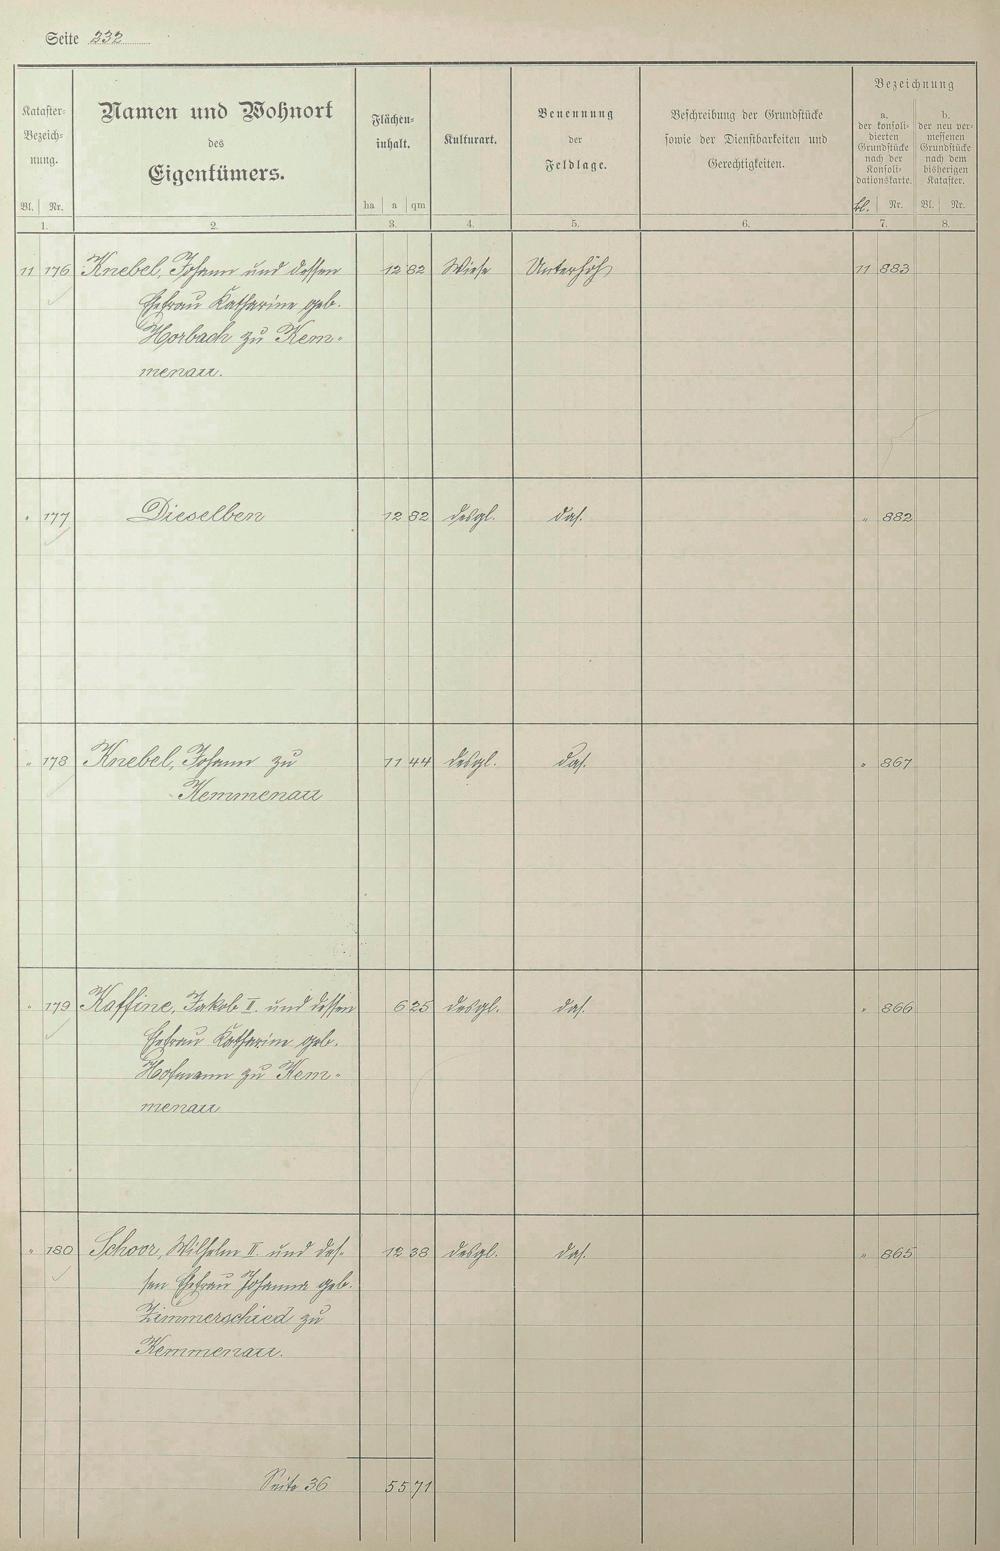 Seite 232
Kataster-
Bezeich-
nung.
Bl. Nr.
1.
Namen und Wohnort
des
Eigentümers.
2.
Flächen-
inhalt.
ha a qm
3.
Kulturart.
4.
Benennung
der
Feldlage.
5.
Beschreibung der Grundstücke
sowie der Dienstbarkeiten und
Gerechtigkeiten.
6.
Bezeichnung
a.
der konsoli-
dierten
Grundstücke
nach der
Konsoli-
dationskarte.
Bl. Nr.
7.
b.
der neu ver-
messenen
Grundstücke
nach dem
bisherigen
Kataster.
Bl. Nr.
8.
11 176 Knebel, Johann und dessen 12 82 Wiese Unterhöh 11 883
Ehefrau Katharine geb.
Horbach zu Kem-
menau.
" 177 Dieselben 12 82 desgl. das. " 882
" 178 Knebel, Johann zu 11 44 desgl. das. " 867
Kemmenau
" 179 Kaffine, Jakob II. und dessen 6 25 desgl. das. " 866
Ehefrau Katharine geb.
Hofmann zu Kem-
menau
" 180 Schoor, Wilhelm II. und des- 12 38 desgl. das. " 865
sen Ehefrau Johanna geb.
Zimmerschied zu
Kemmenau.
Seite 36 55 71